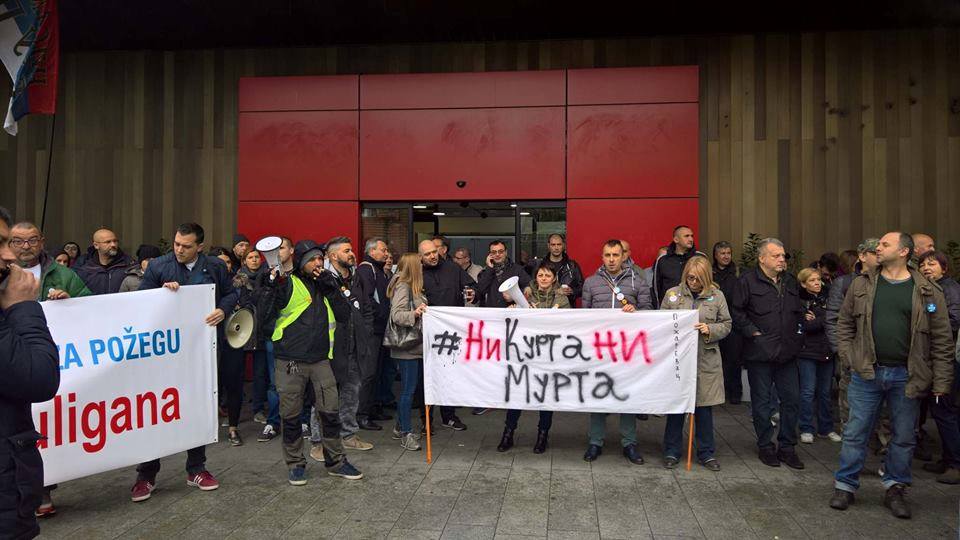 ZA POŽEGU
uligana
#НиКуртаНИ
Мурта
Пожаревац